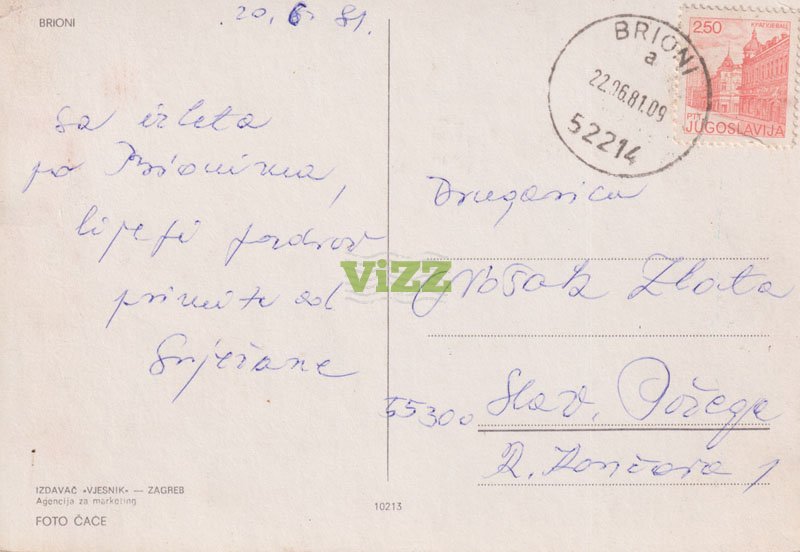 BRIONI
20. 6. 81.
sa izleta
po Brionima,
lijepi pozdrav
primite od
Snježane
IZDAVAČ »VJESNIK« — ZAGREB
Agencija za marketing
FOTO ČAČE
10213
BRIONI
a
22.06.81.09
52214
2.50
PTT
JUGOSLAVIJA
Drugarica
Zlata
55300 Slav. Požega
R. Končara 1
ViZZ